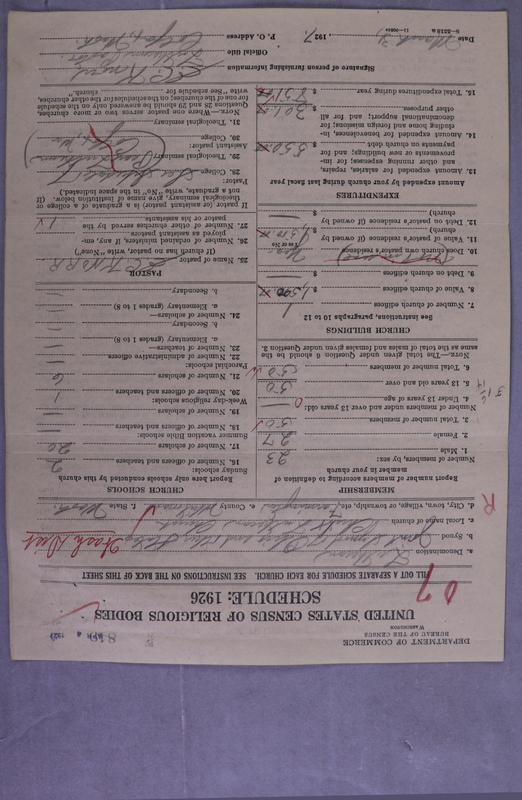 DEPARTMENT OF COMMERCE
BUREAU OF THE CENSUS
WASHINGTON
UNITED STATES CENSUS OF RELIGIOUS BODIES
SCHEDULE: 1926
FILL OUT A SEPARATE SCHEDULE FOR EACH CHURCH. SEE INSTRUCTIONS ON THE BACK OF THIS SHEET
a. Denomination Lutheran
b. Synod Joint Synod of Ohio and other States
c. Local name of church
d. City, town, village, or township, etc. Farmington e. County Whitman f. State Wash.
MEMBERSHIP
Report number of members according to definition of member in your church
Number of members, by sex:
1. Male 23
2. Female 27
3. Total number of members 50
Number of members under and over 13 years old:
4. Under 13 years of age 0
5. 13 years old and over 50
6. Total number of members 50
NOTE.—The total given under Question 6 should be the same as the total of males and females given under Question 3.
CHURCH BUILDINGS
See instructions, paragraphs 10 to 12
7. Number of church edifices 1
8. Value of church edifices $
9. Debt on church edifices $
10. Does church own pastor's residence?
(Yes or No)
11. Value of pastor's residence (if owned by church) $
12. Debt on pastor's residence (if owned by church) $
EXPENDITURES
Amount expended by your church during last fiscal year
13. Amount expended for salaries, repairs, and other running expenses; for improvements or new buildings; and for payments on church debt $ 550
14. Amount expended for benevolences, including home and foreign missions; for denominational support; and for all other purposes $ 301
15. Total expenditures during year $ 851
CHURCH SCHOOLS
Report here only schools conducted by this church
Sunday schools:
16. Number of officers and teachers 2
17. Number of scholars 20
Summer vacation Bible schools:
18. Number of officers and teachers
19. Number of scholars
Week-day religious schools:
20. Number of officers and teachers 1
21. Number of scholars 6
Parochial schools:
22. Number of administrative officers
23. Number of teachers—
a. Elementary (grades 1 to 8)
b. Secondary
24. Number of scholars—
a. Elementary (grades 1 to 8)
b. Secondary
PASTOR
25. Name of pastor
(If church has no pastor, write "None")
26. Number of ordained ministers, if any, employed as assistant pastors
27. Number of other churches served by the pastor or his assistants
If pastor (or assistant pastor) is a graduate of a college or theological seminary, give name of institution below. (If not a graduate, write "No" in the space indicated.)
Pastor:
28. College
29. Theological seminary
Assistant pastor:
30. College
31. Theological seminary
NOTE.—Where one pastor serves two or more churches, Questions 25 and 28 should be answered only on the schedule for one of the churches; on the schedules for the other churches, write "See schedule for church."
Signature of person furnishing information
Official title
Date March 31, 1927. P. O. Address Colfax, Wash.